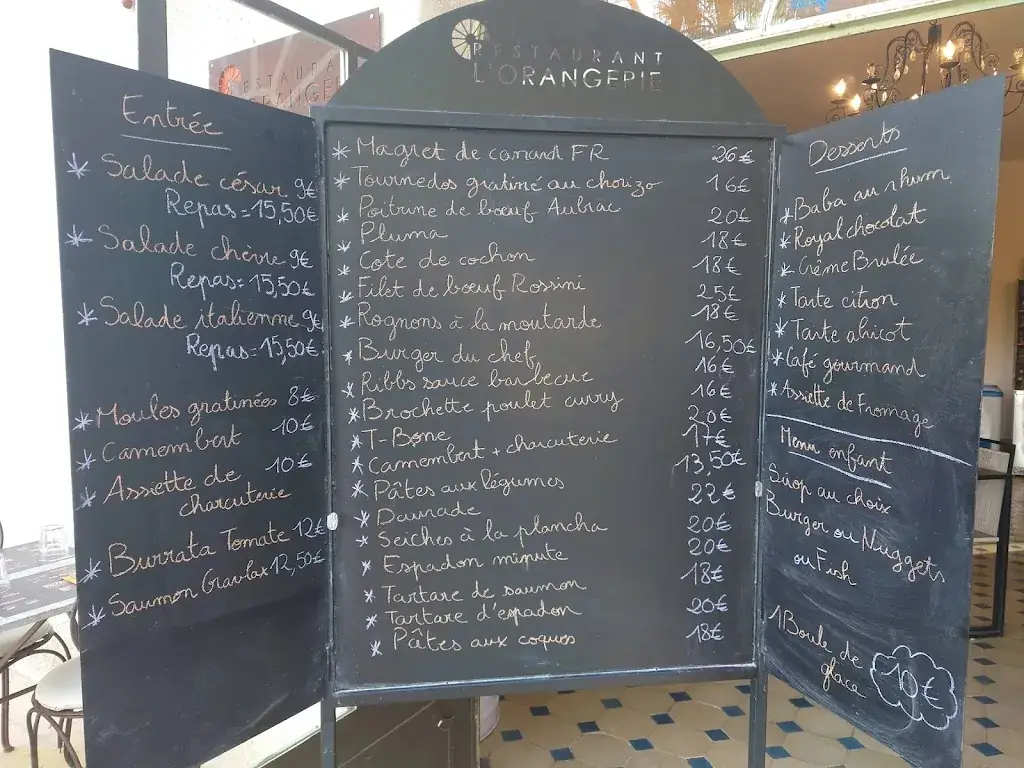 RESTAURANT
L'ORANGERIE
Entrée
* Salade césar 9€
Repas = 15,50€
* Salade chèvre 9€
Repas = 15,50€
* Salade italienne 9€
Repas = 15,50€
* Moules gratinées 8€
* Camembert 10€
* Assiette de charcuterie 10€
* Burrata Tomate 12€
* Saumon Gravlax 12,50€
RESTAURANT
L'ORANGERIE
* Magret de canard FR 26€
* Tournedos gratiné au chorizo 16€
* Poitrine de bœuf Aubrac 20€
* Pluma 18€
* Cote de cochon 18€
* Filet de bœuf Rossini 25€
* Rognons à la moutarde 18€
* Burger du chef 16,50€
* Ribbs sauce barbecue 16€
* Brochette poulet curry 16€
* T-Bone 20€
* Camembert + charcuterie 17€
* Pâtes aux légumes 13,50€
* Daurade 22€
* Seiches à la plancha 20€
* Espadon minute 20€
* Tartare de saumon 18€
* Tartare d'espadon 20€
* Pâtes aux coques 18€
Desserts
* Baba au rhum
* Royal chocolat
* Crème Brulée
* Tarte citron
* Tarte abricot
* Café gourmand
* Assiette de Fromage
Menu enfant
Sirop au choix
Burger ou Nuggets
ou Fish
1 Boule de
glace
10€